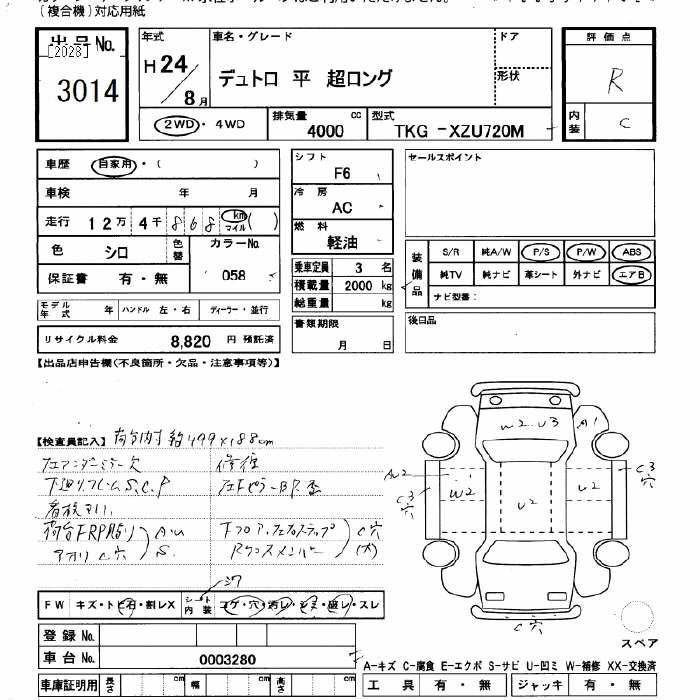 (複合機)対応用紙
出品No.
[2023]
3014
年式
H24/8月
車名・グレード
デュトロ 平 超ロング
ドア
形状
2WD・4WD
排気量 4000 cc
型式 TKG -XZU720M
評価点
R
内装 C
車歴 自家用・( )
車検 年 月
走行 12万 4千 868 km マイル ( )
色 シロ
色替
カラーNo. 058
保証書 有・無
モデル年式 年 ハンドル 左・右 ディーラー・並行
リサイクル料金 8,820 円 預託済
シフト F6
冷房 AC
燃料 軽油
乗車定員 3 名
積載量 2000 kg
総重量 kg
書類期限
月 日
セールスポイント
装備品
S/R 純A/W P/S P/W ABS
純TV 純ナビ 革シート 外ナビ エアB
ナビ型番:
後日品
【出品店申告欄(不良箇所・欠品・注意事項等)】
【検査員記入】 荷台内寸 約 499×188cm
フェアンダーミラー欠 修復
下廻りフレームS.C.P
荷台FRP貼り AU
アオリ C穴 S.
下フロア C穴
(大)
W2 U3 A1
AU2
C3穴
W2
U2
U2
C3穴
C穴
スペア
シワ
FW キズ・トビ石・割レX シート内装 コゲ・穴・汚レ・シミ・破レ・スレ
登録No.
車台No. 0003280
車庫証明用 長さ cm 幅 cm 高さ cm
A-キズ C-腐食 E-エクボ S-サビ U-凹ミ W-補修 XX-交換済
工具 有・無 ジャッキ 有・無